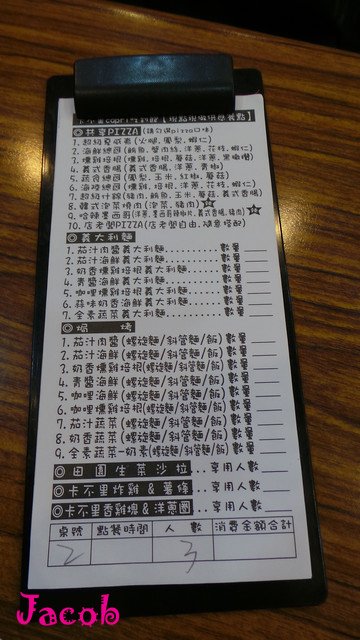 卡不里capri 【現點現做現烤餐點】
◎共享PIZZA(請勾選pizza口味)
1. 超級夏威夷(火腿.鳳梨.蝦仁)
2. 海鮮總匯(鮪魚.蟹肉絲.洋蔥.花枝.蝦仁)
3. 燻雞培根(燻雞.培根.蘑菇.洋蔥.黑橄欖)
4. 義式香腸(義式香腸.洋蔥.青椒)
5. 蔬食總匯(鳳梨.玉米.紅椒.蘑菇)
6. 海陸總匯(燻雞.培根.洋蔥.花枝.蝦仁)
7. 超級什錦(豬肉.鮪魚.玉米.蘑菇.義式香腸)
8. 韓式泡菜燒肉(泡菜.豬肉)
9. 哈辣墨西哥(洋蔥.墨西哥辣椒片.義式香腸.豬肉)
10. 店老闆PIZZA(店老闆自由.隨意搭配)
◎義大利麵
1. 茄汁肉醬義大利麵........數量
2. 茄汁海鮮義大利麵........數量
3. 奶香燻雞培根義大利麵....數量
4. 青醬海鮮義大利麵........數量
5. 咖哩燻雞培根義大利麵....數量
6. 蒜味奶香海鮮義大利麵....數量
7. 全素蔬菜義大利麵........數量
◎焗 烤
1. 茄汁肉醬(螺旋麵/斜管麵/飯)數量
2. 茄汁海鮮(螺旋麵/斜管麵/飯)數量
3. 奶香燻雞培根(螺旋麵/斜管麵/飯)數量
4. 青醬海鮮(螺旋麵/斜管麵/飯)數量
5. 咖哩海鮮(螺旋麵/斜管麵/飯)數量
6. 咖哩燻雞(螺旋麵/斜管麵/飯)數量
7. 茄汁蔬菜(螺旋麵/斜管麵/飯)數量
8. 奶香蔬菜(螺旋麵/斜管麵/飯)數量
9. 全素蔬菜-奶素(螺旋麵/斜管麵/飯)數量
◎田園生菜沙拉..享用人數
◎卡不里炸雞&薯條..享用人數
◎卡不里香雞塊&洋蔥圈..享用人數
桌號 點餐時間 人 數 消費金額合計
2 3
Jacob